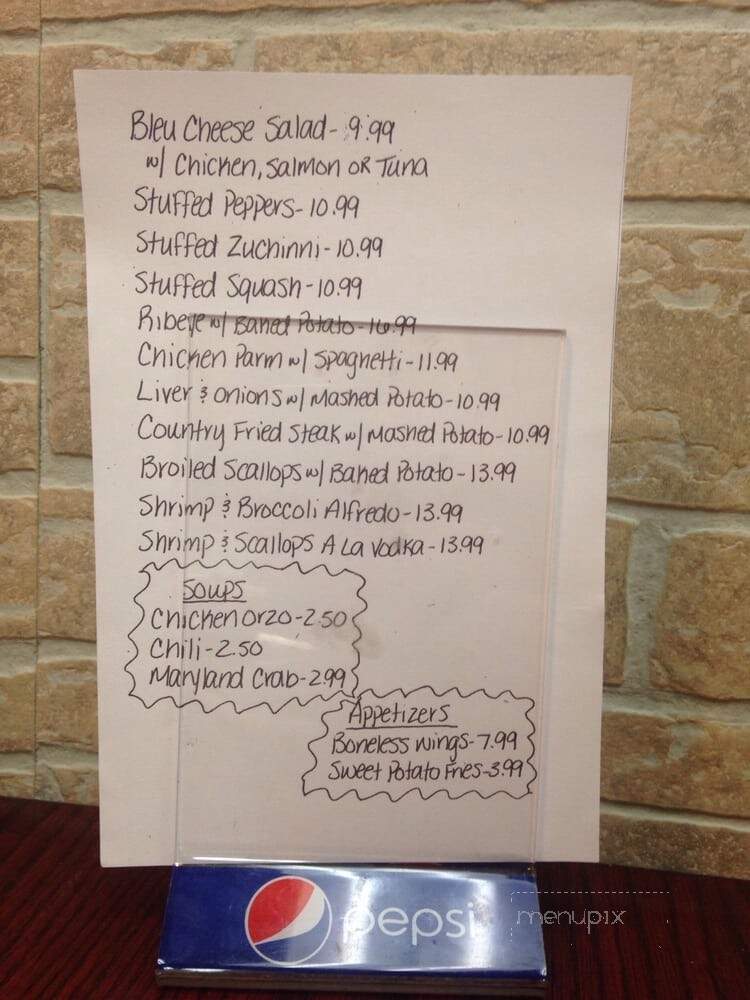 Bleu Cheese Salad- 9.99
w/ Chicken, Salmon OR Tuna
Stuffed Peppers- 10.99
Stuffed Zuchinni- 10.99
Stuffed Squash- 10.99
Ribeye w/ Baked Potato- 16.99
Chicken Parm w/ Spaghetti- 11.99
Liver & Onions w/ Mashed Potato- 10.99
Country Fried Steak w/ Mashed Potato- 10.99
Broiled Scallops w/ Baked Potato- 13.99
Shrimp & Broccoli Alfredo- 13.99
Shrimp & Scallops A La Vodka- 13.99
Soups
Chicken Orzo- 2.50
Chili- 2.50
Maryland Crab- 2.99
Appetizers
Boneless Wings- 7.99
Sweet Potato Fries- 3.99
pepsi
menupix